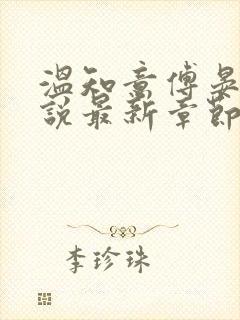 溫知意傅晏
說最新章節
李珍珠